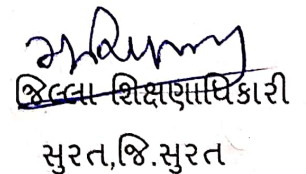 જિલ્લા શિક્ષણાધિકારી
સુરત,જિ.સુરત